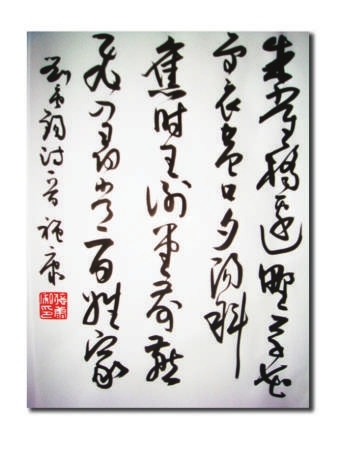 朱雀橋邊野草花
烏衣巷口夕陽斜
舊时王謝堂前燕
飛入尋常百姓家
劉禹錫詩一首 康